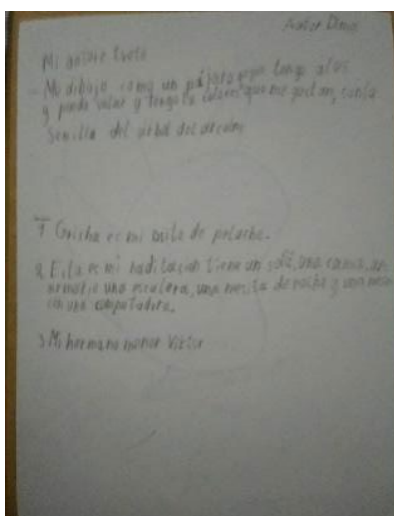 Autor Dima
Mi autorretrato
- Me dibujo como un pájaro porque tengo alas
y puedo volar y tengo los colores que me gustan, con la
Semilla del árbol del dragón
1 Grisha es mi osito de peluche.
2 Esta es mi habitacion tiene un sofá, una cama, un
armario una escalera, una mesita de noche y una mesa
con una computadora.
3 Mi hermano menor Viktor